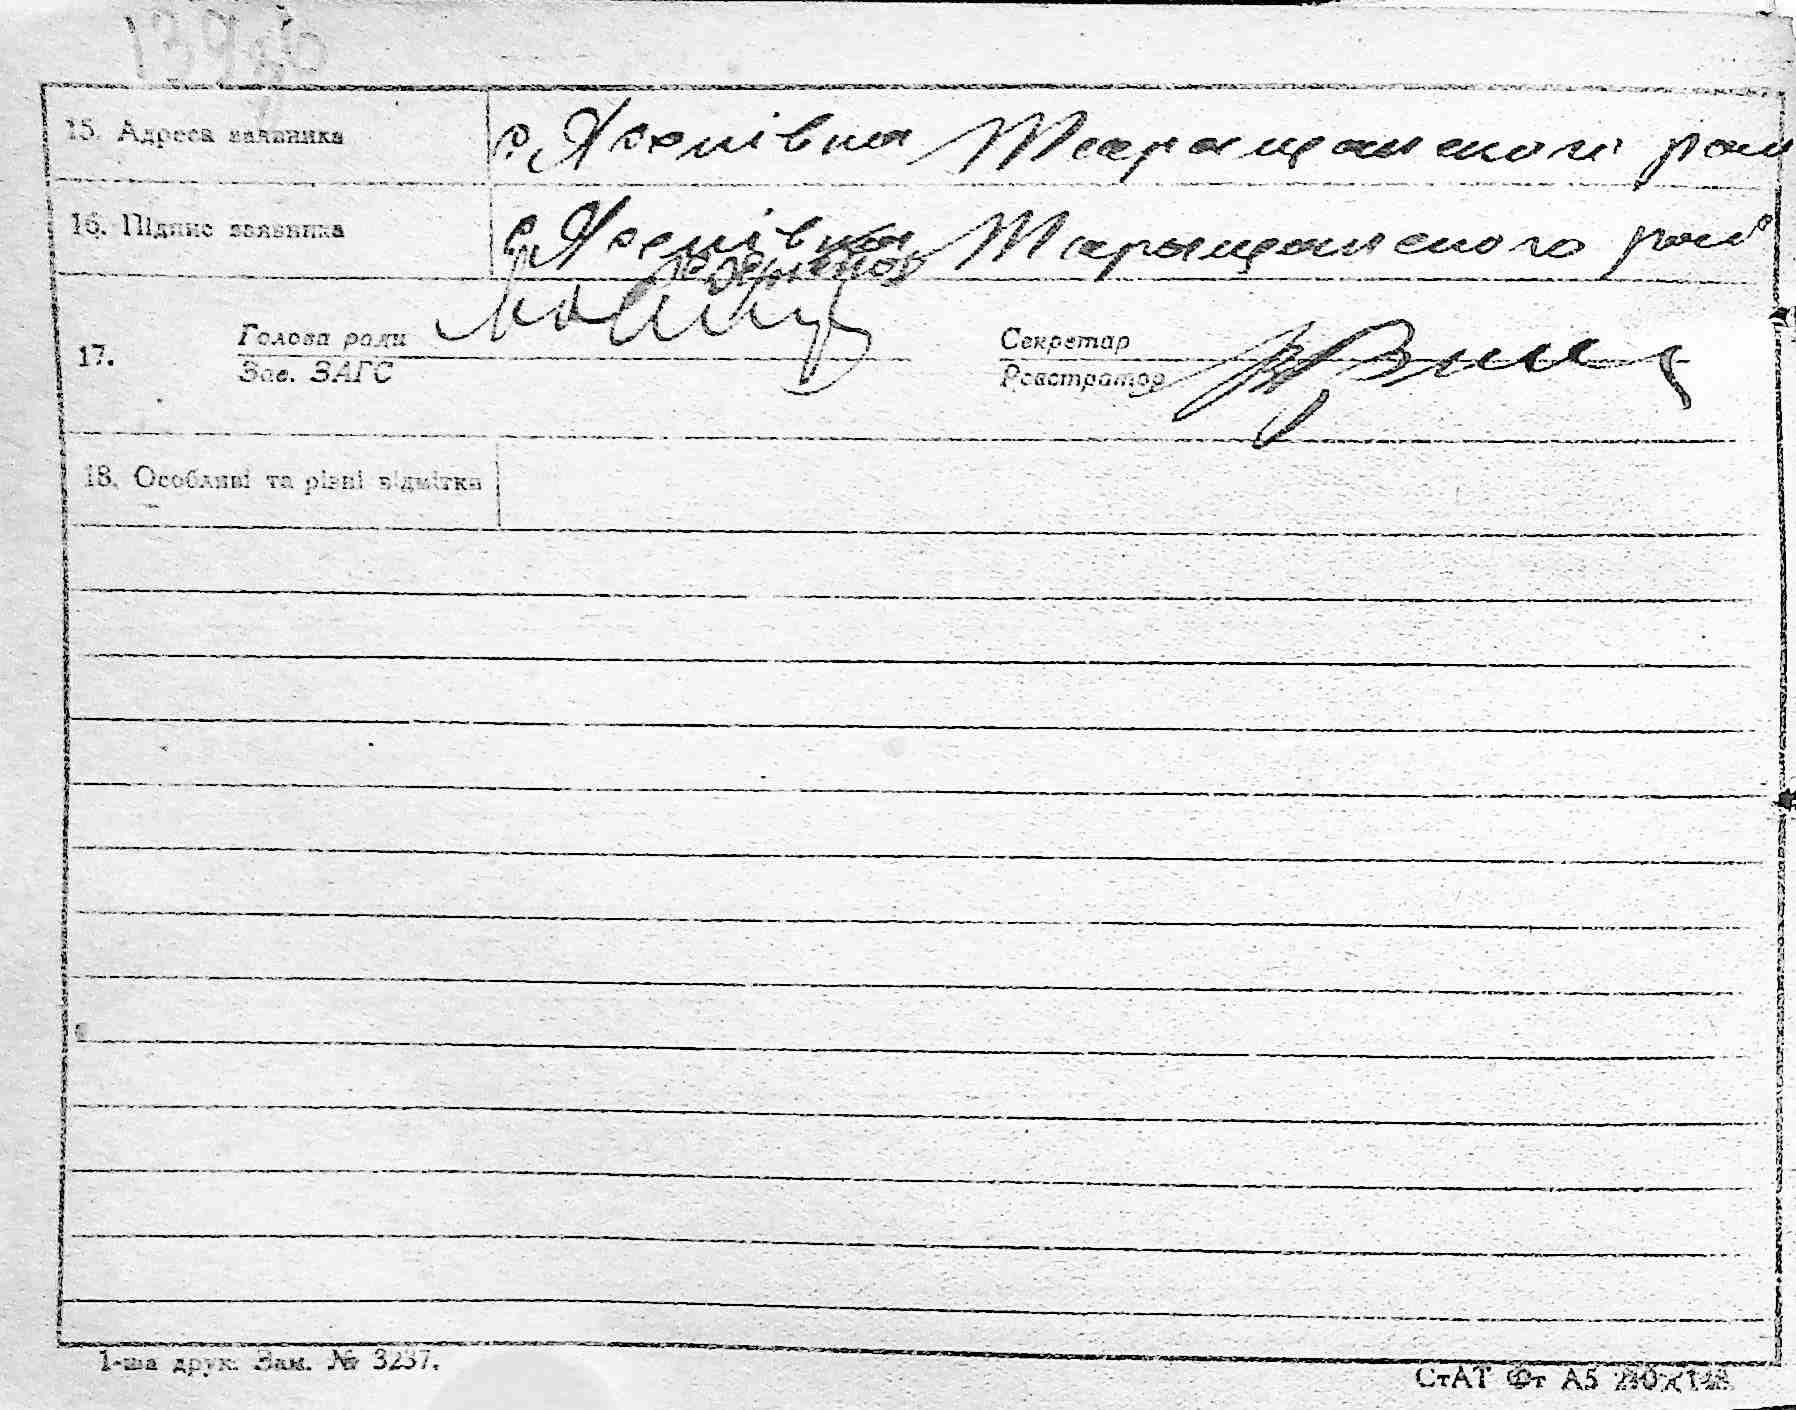 15. Адреса заявника с. Ясенівка Таращанского рай
16. Підпис заявника с. Ясенівка Таращанского рай
17. Голова ради Секретар
Зав. ЗАГС Реєстратор
18. Особливі та різні відмітки
1-ша друк. Зам. № 3237. СтАТ Фт А5 210×148